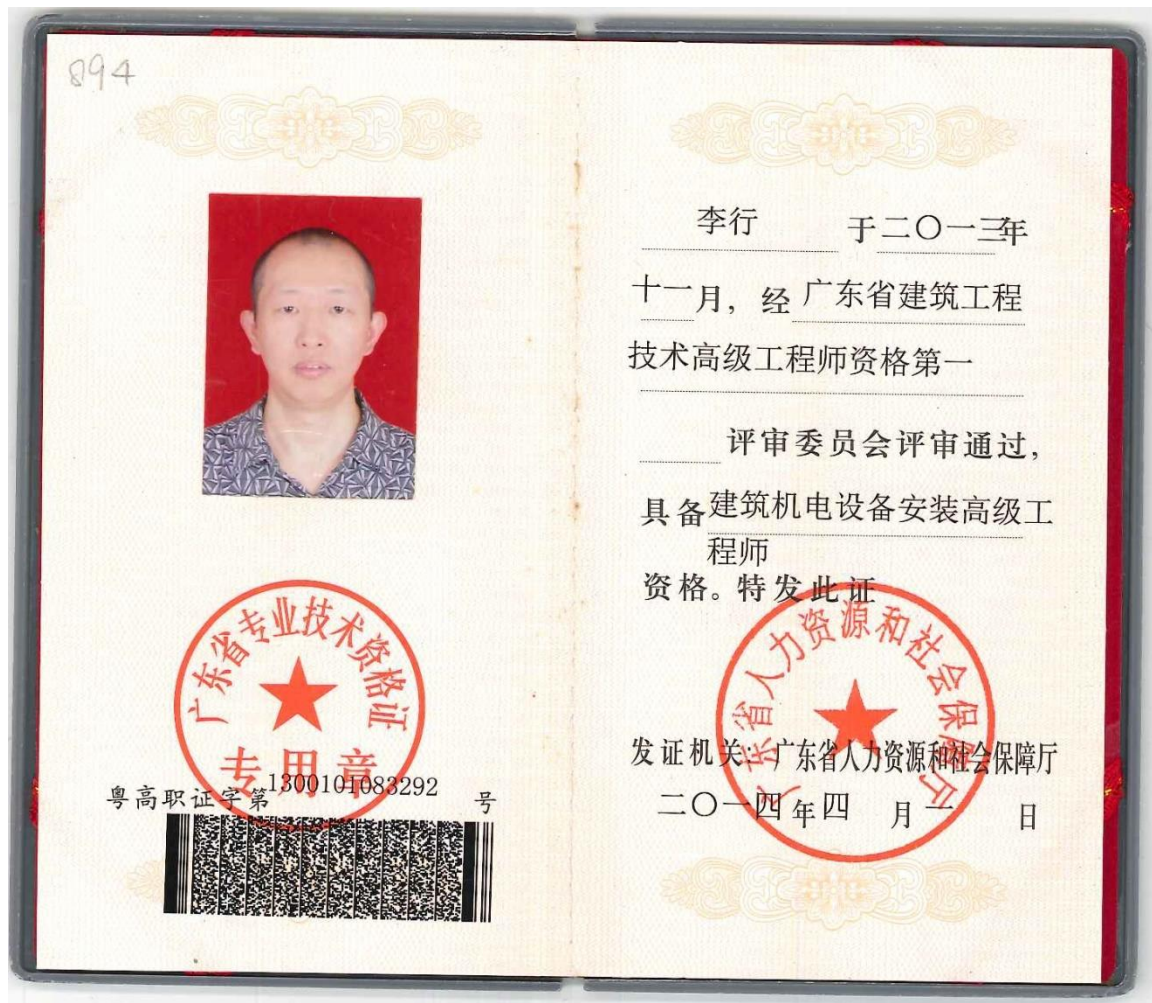 894
广东省专业技术资格证
专用章
粤高职证字第1300101083292 号
李行 于二〇一三年
十一月，经广东省建筑工程
技术高级工程师资格第一
评审委员会评审通过，
具备建筑机电设备安装高级工
程师
资格。特发此证
广东省人力资源和社会保障厅
发证机关：广东省人力资源和社会保障厅
二〇一四年四月一日